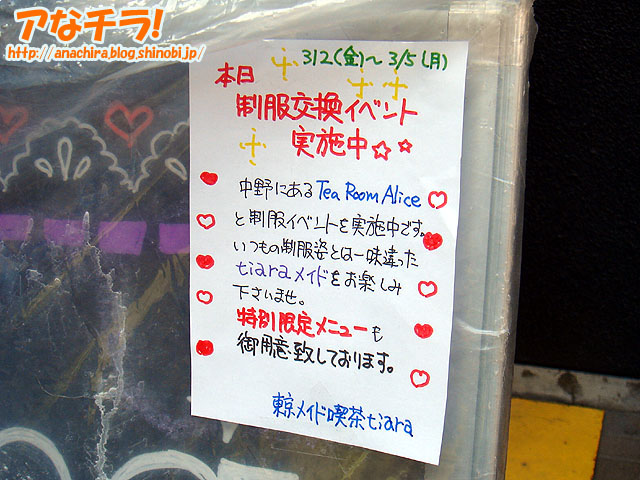 アなチラ!
http://anachira.blog.shinobi.jp/
3/2(金)~3/5(月)
本日
制服交換イベント
実施中☆☆
中野にあるTea Room Alice
と制服イベントを実施中です。
いつもの制服姿とは一味違った
tiaraメイドをお楽しみ
下さいませ。
特別限定メニューも
御用意致しております。
東京メイド喫茶tiara